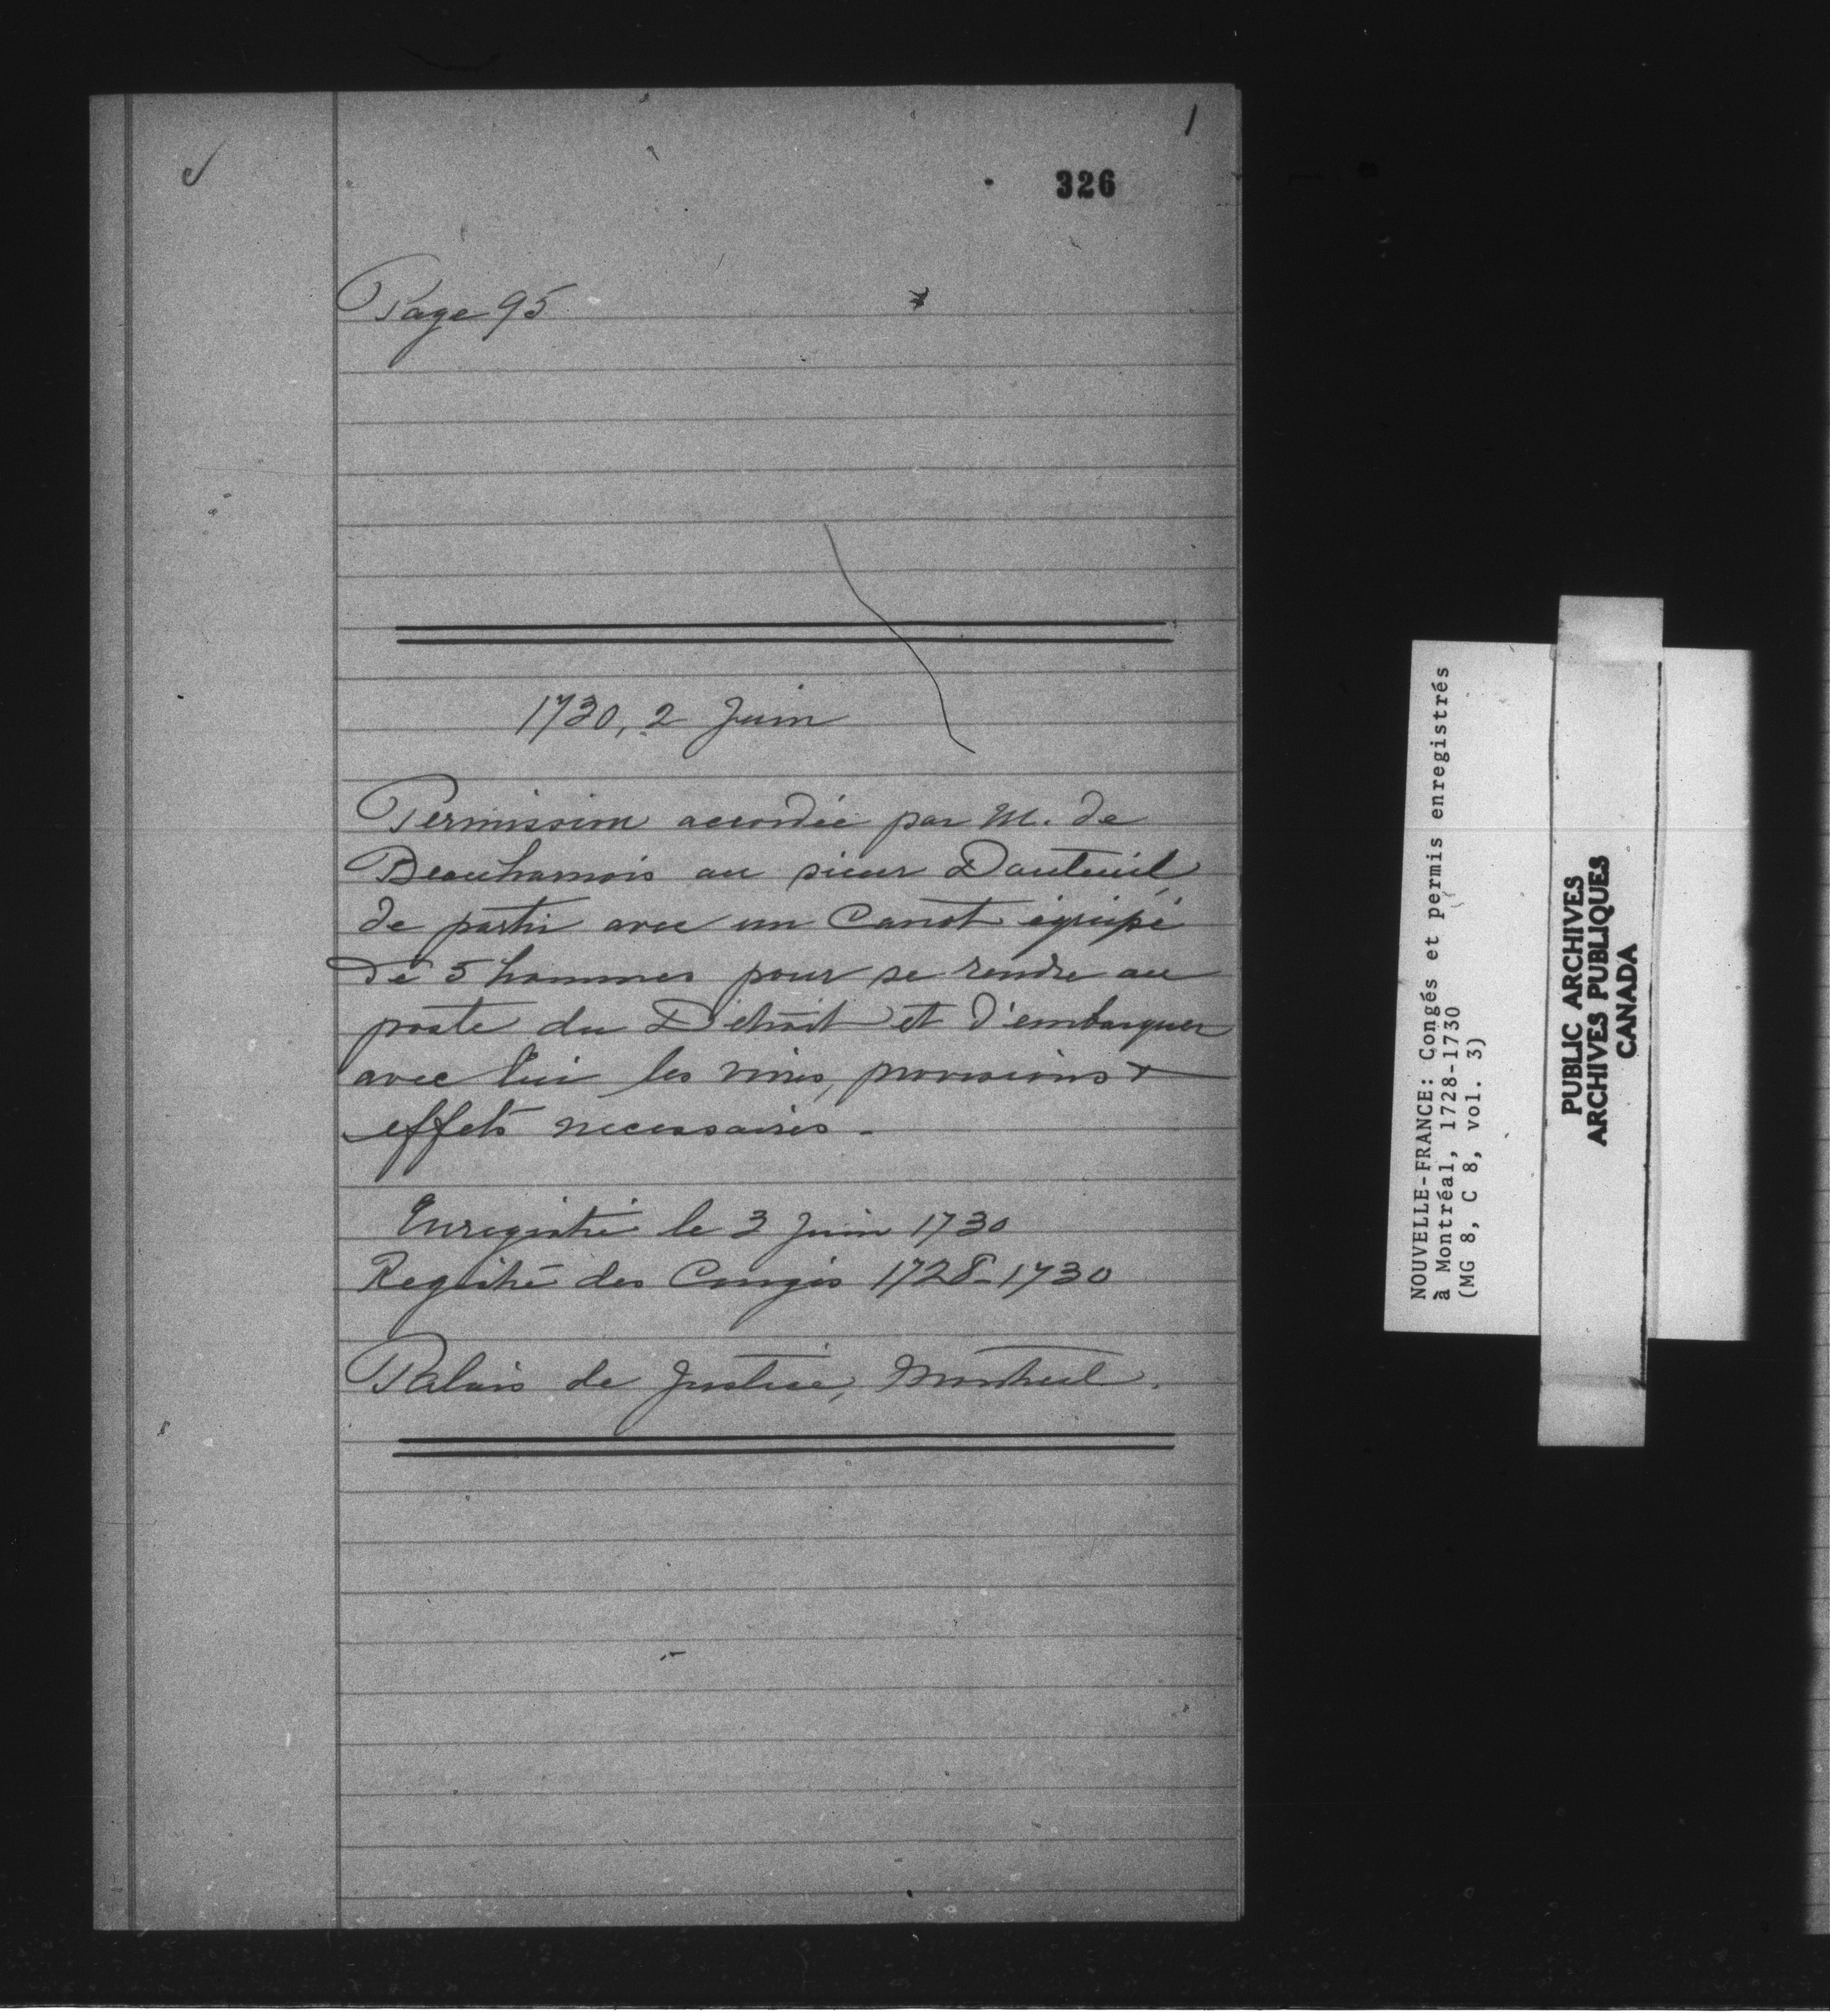 1
326
Page 95
1730, 2 Juin
Permission accordée par M. de
Beauharnois au sieur Dauteuil
de partir avec un Canot équipé
de 5 hommes pour se rendre au
poste du Détroit et d'embarquer
avec lui les vivres, provisions &
effets necessaires.
Enregistré le 3 Juin 1730
Registre des Congés 1728-1730
Palais de Justice, Montreal.
NOUVELLE-FRANCE: Congés et permis enregistrés
à Montréal, 1728-1730
(MG 8, C 8, vol. 3)
PUBLIC ARCHIVES
ARCHIVES PUBLIQUES
CANADA